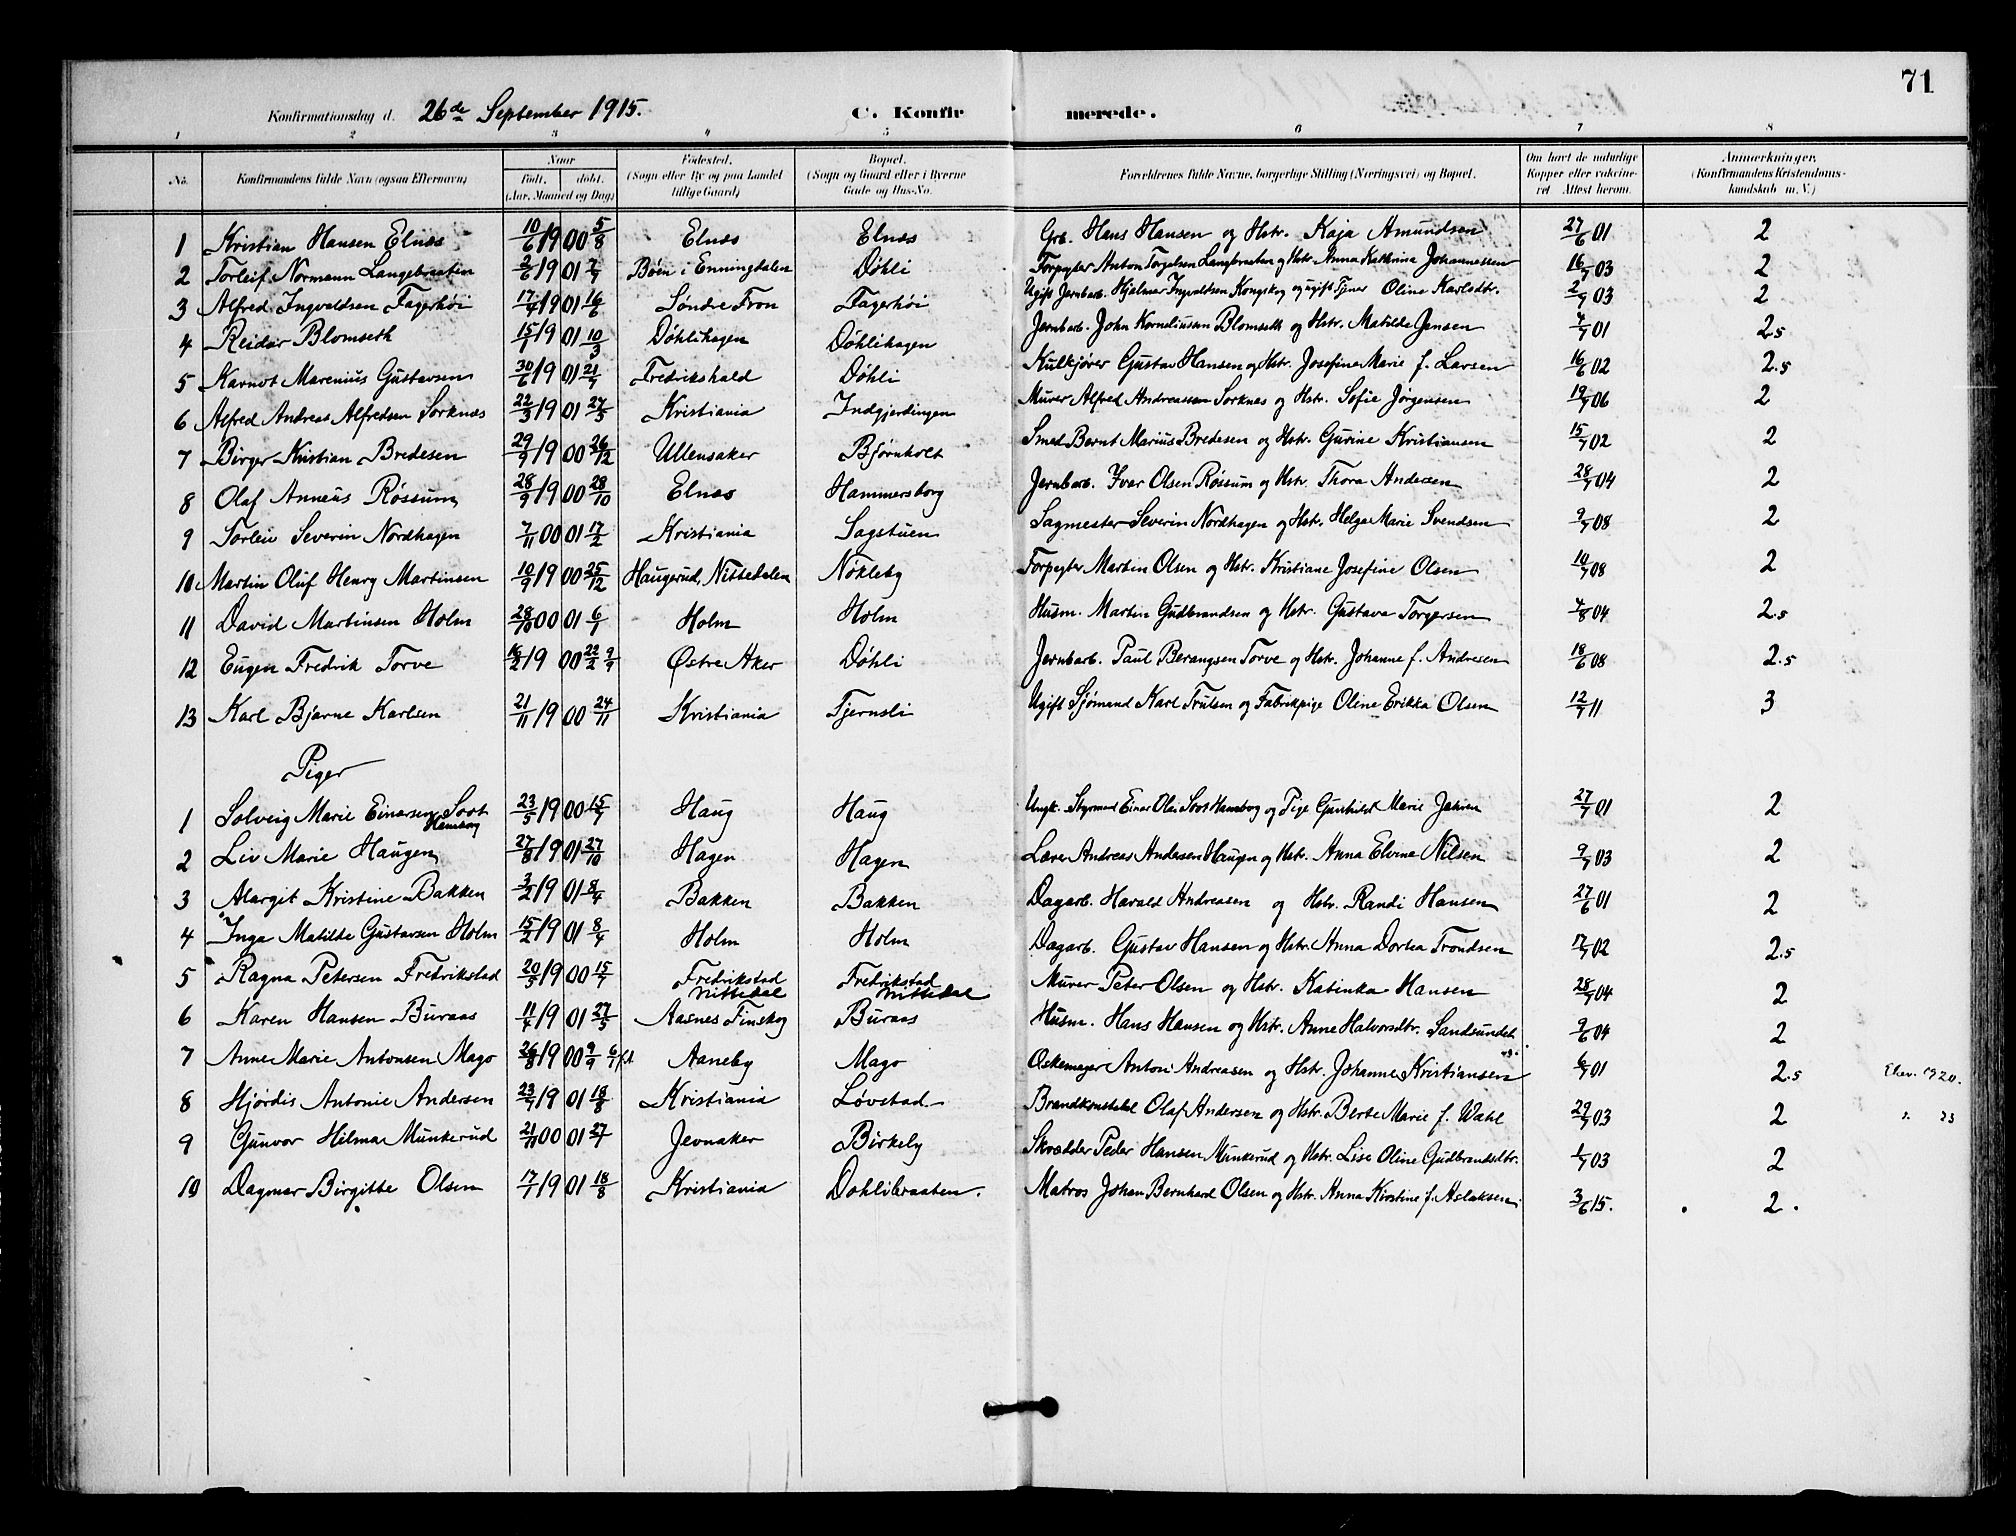 71
Konfirmationsdag d. 26de September 1915. C. Konfirmerede.
1 2 3 4 5 6 7 8
No. Konfirmandens fulde Navn (ogsaa Efternavn) Naar født. døbt. (Aar, Maaned og Dag) Fødested. (Sogn eller By og paa Landet tillige Gaard) Bopæl. (Sogn og Gaard eller i Byerne Gade og Hus-No. Forældrenes fulde Navne, borgerlige Stilling (Næringsvei) og Bopæl. Om havt de naturlige Kopper eller vakcineret. Attest herom. Anmerkninger. (Konfirmandens Kristendomskundskab m. V.)
1 Kristian Hansen Elnæs 10/6 1900 5/8 Elnæs Elnæs Grb. Hans Hansen og Hstr. Kaja Amundsen 27/6 01 2
2 Torleif Normann Langebraaten 2/6 1901 7/7 Bøen i Enningdalen Døhli Forpagter Anton Torgelsen Langbraaten og Hstr. Anna Kathrina Johannessen 16/7 03 2
3 Alfred Ingvaldsen Fagerhøi 17/4 1901 16/6 Søndre Fron Fagerhøi Ugift Jernbarb. Hjalmar Ingvaldsen Kongskog og ugift Tjener Oline Karlsdtr. 2/7 03 2
4 Reidar Blomseth 15/1 1901 10/3 Døhlihagen Døhlihagen Jernbarb. John Korneliussen Blomseth og Hstr. Matilde Jensen 4/7 01 2.5
5 Karnot Marenius Gustavsen 30/6 1901 21/7 Fredrikshald Døhli Kulkjører Gustav Hansen og Hstr. Josefine Marie f. Larsen 16/6 02 2.5
6 Alfred Andreas Alfredsen Sorknæs 22/3 1901 27/5 Kristiania Indgjerdingen Murer Alfred Andreassen Sorknes og Hstr. Sofie Jørgensen 19/7 06 2
7 Birger Kristian Bredesen 29/9 1900 26/12 Ullensaker Bjørnholt Smed Bernt Marius Bredesen og Hstr. Gurine Kristiansen 15/7 02 2
8 Olaf Anneus Røssum 28/9 1900 28/10 Elnæs Hammersborg Jernbarb. Ivar Olsen Røssum og Hstr. Thora Andersen 28/7 04 2
9 Torleiv Severin Nordhagen 7/11 00 01 17/2 Kristiania Sagstuen Sagmester Severin Nordhagen og Hstr. Helga Marie Svendsen 9/7 08 2
10 Martin Oluf Henry Martinsen 10/9 1900 25/12 Haugerud, Nittedalen Nökleby Forpagter Martin Olsen og Hstr. Kristiane Josefine Olsen 10/7 08 2
11 David Martinsen Holm 28/10 00 01 6/1 Holm Holm Husm. Martin Gudbrandsen og Hstr. Gustava Torgersen 4/8 04 2.5
12 Eugen Fredrik Torve 16/2 1900 22/2 9/9 Østre Aker Döhli Jernbarb. Paul Berangsen Torve og Hstr. Johanne f. Andresen 18/6 08 2.5
13 Karl Bjarne Karlsen 21/11 1900 24/11 Kristiania Tjernsli Ugift Sjømand Karl Trulsen og Fabrikpige Oline Erikka Olsen 12/7 11 3
Piger
1 Solveig Marie Einarsen Soot Hamborg 23/5 1900 15/7 Haug Haug Ungk. Styrmand Einar Olai Soot Hamborg og Pige Gunhilda Marie Jahren 27/7 01 2
2 Liv Marie Haugen 27/8 1901 27/10 Hagen Hagen Lærer Andreas Andersen Haugen og Hstr. Anna Elvina Nilsen 9/7 03 2
3 Margit Kristine Bakken 3/2 1901 8/4 Bakken Bakken Dagarb. Harald Andreasen og Hstr. Randi Hansen 27/6 01 2
4 Inga Matilde Gustavsen Holm 15/2 1901 8/4 Holm Holm Dagarb. Gustav Hansen og Hstr. Anna Dortea Trondsen 17/7 02 2.5
5 Ragna Petersen Fredrikstad 20/5 1900 15/7 Fredrikstad Nittedal Fredrikstad Nittedal Murer Peter Olsen og Hstr. Katinka Hansen 28/7 04 2
6 Karen Hansen Buraas 11/4 1901 27/5 Aasnes Finskog Buraas Husm. Hans Hansen og Hstr. Anne Halvorsdtr. Sandsundet 9/6 04 2
7 Anne Marie Antonsen Mago 26/8 1900 9/9 Aaneby Mago Anton Andreasen og Hstr. Johanne Kristiansen 6/7 01 2.5 1920.
8 Hjørdis Antonie Andersen 23/7 1901 18/8 Kristiania Løvstad Brandkonstabel Olaf Andersen og Hstr. Berte Marie f. Wahl 29/7 03 2 23
9 Gunvor Hilma Munkerud 21/11 00 01 27/1 Jevnaker Birkely Skrædder Peder Hansen Munkerud og Hstr. Lise Oline Gudbrandsdtr. 1/7 03 2
10 Dagmar Birgitte Olsen 17/7 1901 18/8 Kristiania Dohlibraaten. Matros Johan Bernhard Olsen og Hstr. Anna Kirstine f. Aslaksen 3/6 15. 2.